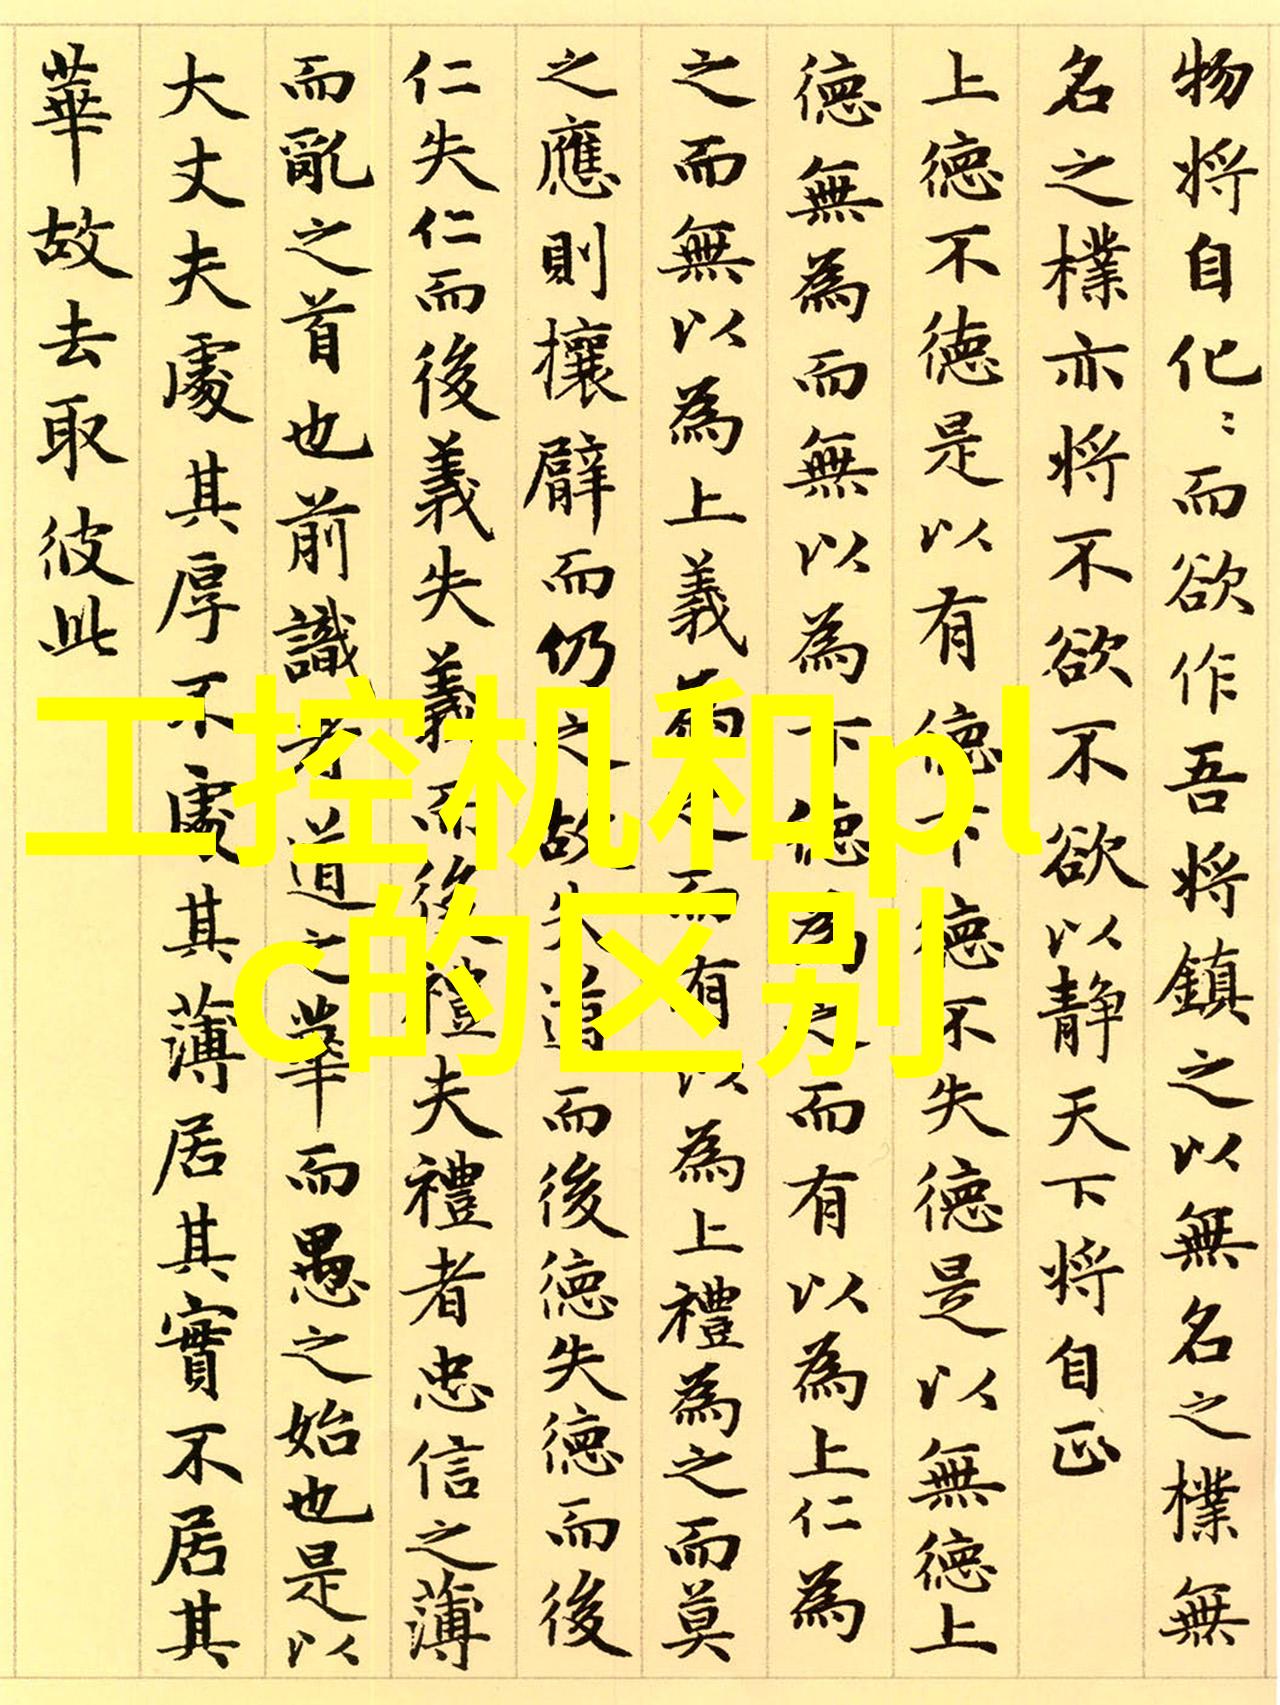 物将自化〻而欲作吾将鎮之以無名之樸無
名之樸亦将不欲不欲以静天下将自正
上徳不徳是以有徳下徳不失徳是以無徳上
徳無為而無以為下徳為之而有以為上仁為
之而無以為上義為之而有以為上禮為之而莫
之應則攘臂而仍之故失道而後徳失徳而後
仁失仁而後義失義而後禮夫禮者忠信之薄
而亂之首也前識者道之華而愚之始也是以
大丈夫處其厚不處其薄居其實不居其
華故去取彼此
工控机和pl
c的区别